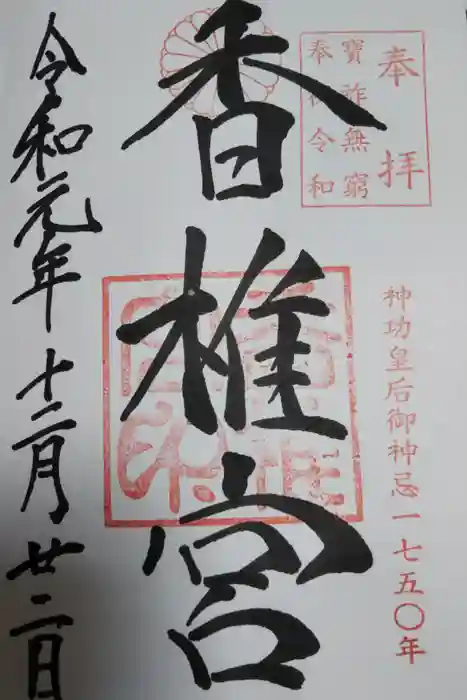 奉拝
寶祚無窮
奉祝令和
神功皇后御神忌一七五〇年
香椎宮
令和元年十二月廿二日